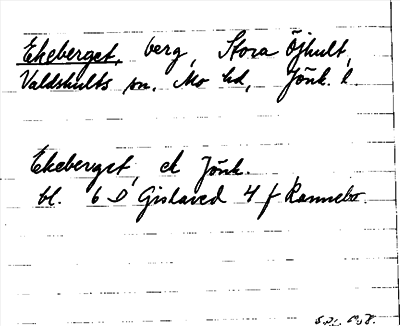 Ekeberget, berg, Stora Öjhult,
Valdshults sn, Mo hd, Jönk. l.
Ekeberget, ek Jönk.
bl. 6 D Gislaved 4 f Rannebo.